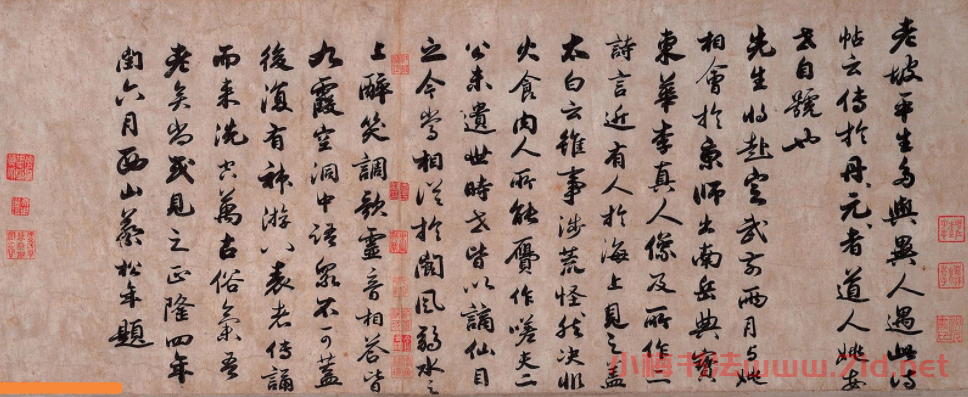 老坡平生多與異人遇此詩
帖云傳於丹元丹元者道人姚安
世自號也
先生將赴定武前兩月與姚
相會於京師出南岳典寶
東華李真人像及所作二
詩言近有人於海上見之蓋
太白云雖事涉荒怪然決非
火食肉人所能贋作嗟夫二
公未遺世時世皆以謫仙目
之今當相從於閬風弱水之
上醉笑調歌靈音相答皆
九霞空洞中語衆不可蓋
後復有神游八表者傳誦
而來洗空萬古俗氣吾
老矣尚或見之正隆四年
閏六月西山蔡松年題
小楷书法www.7ld.net